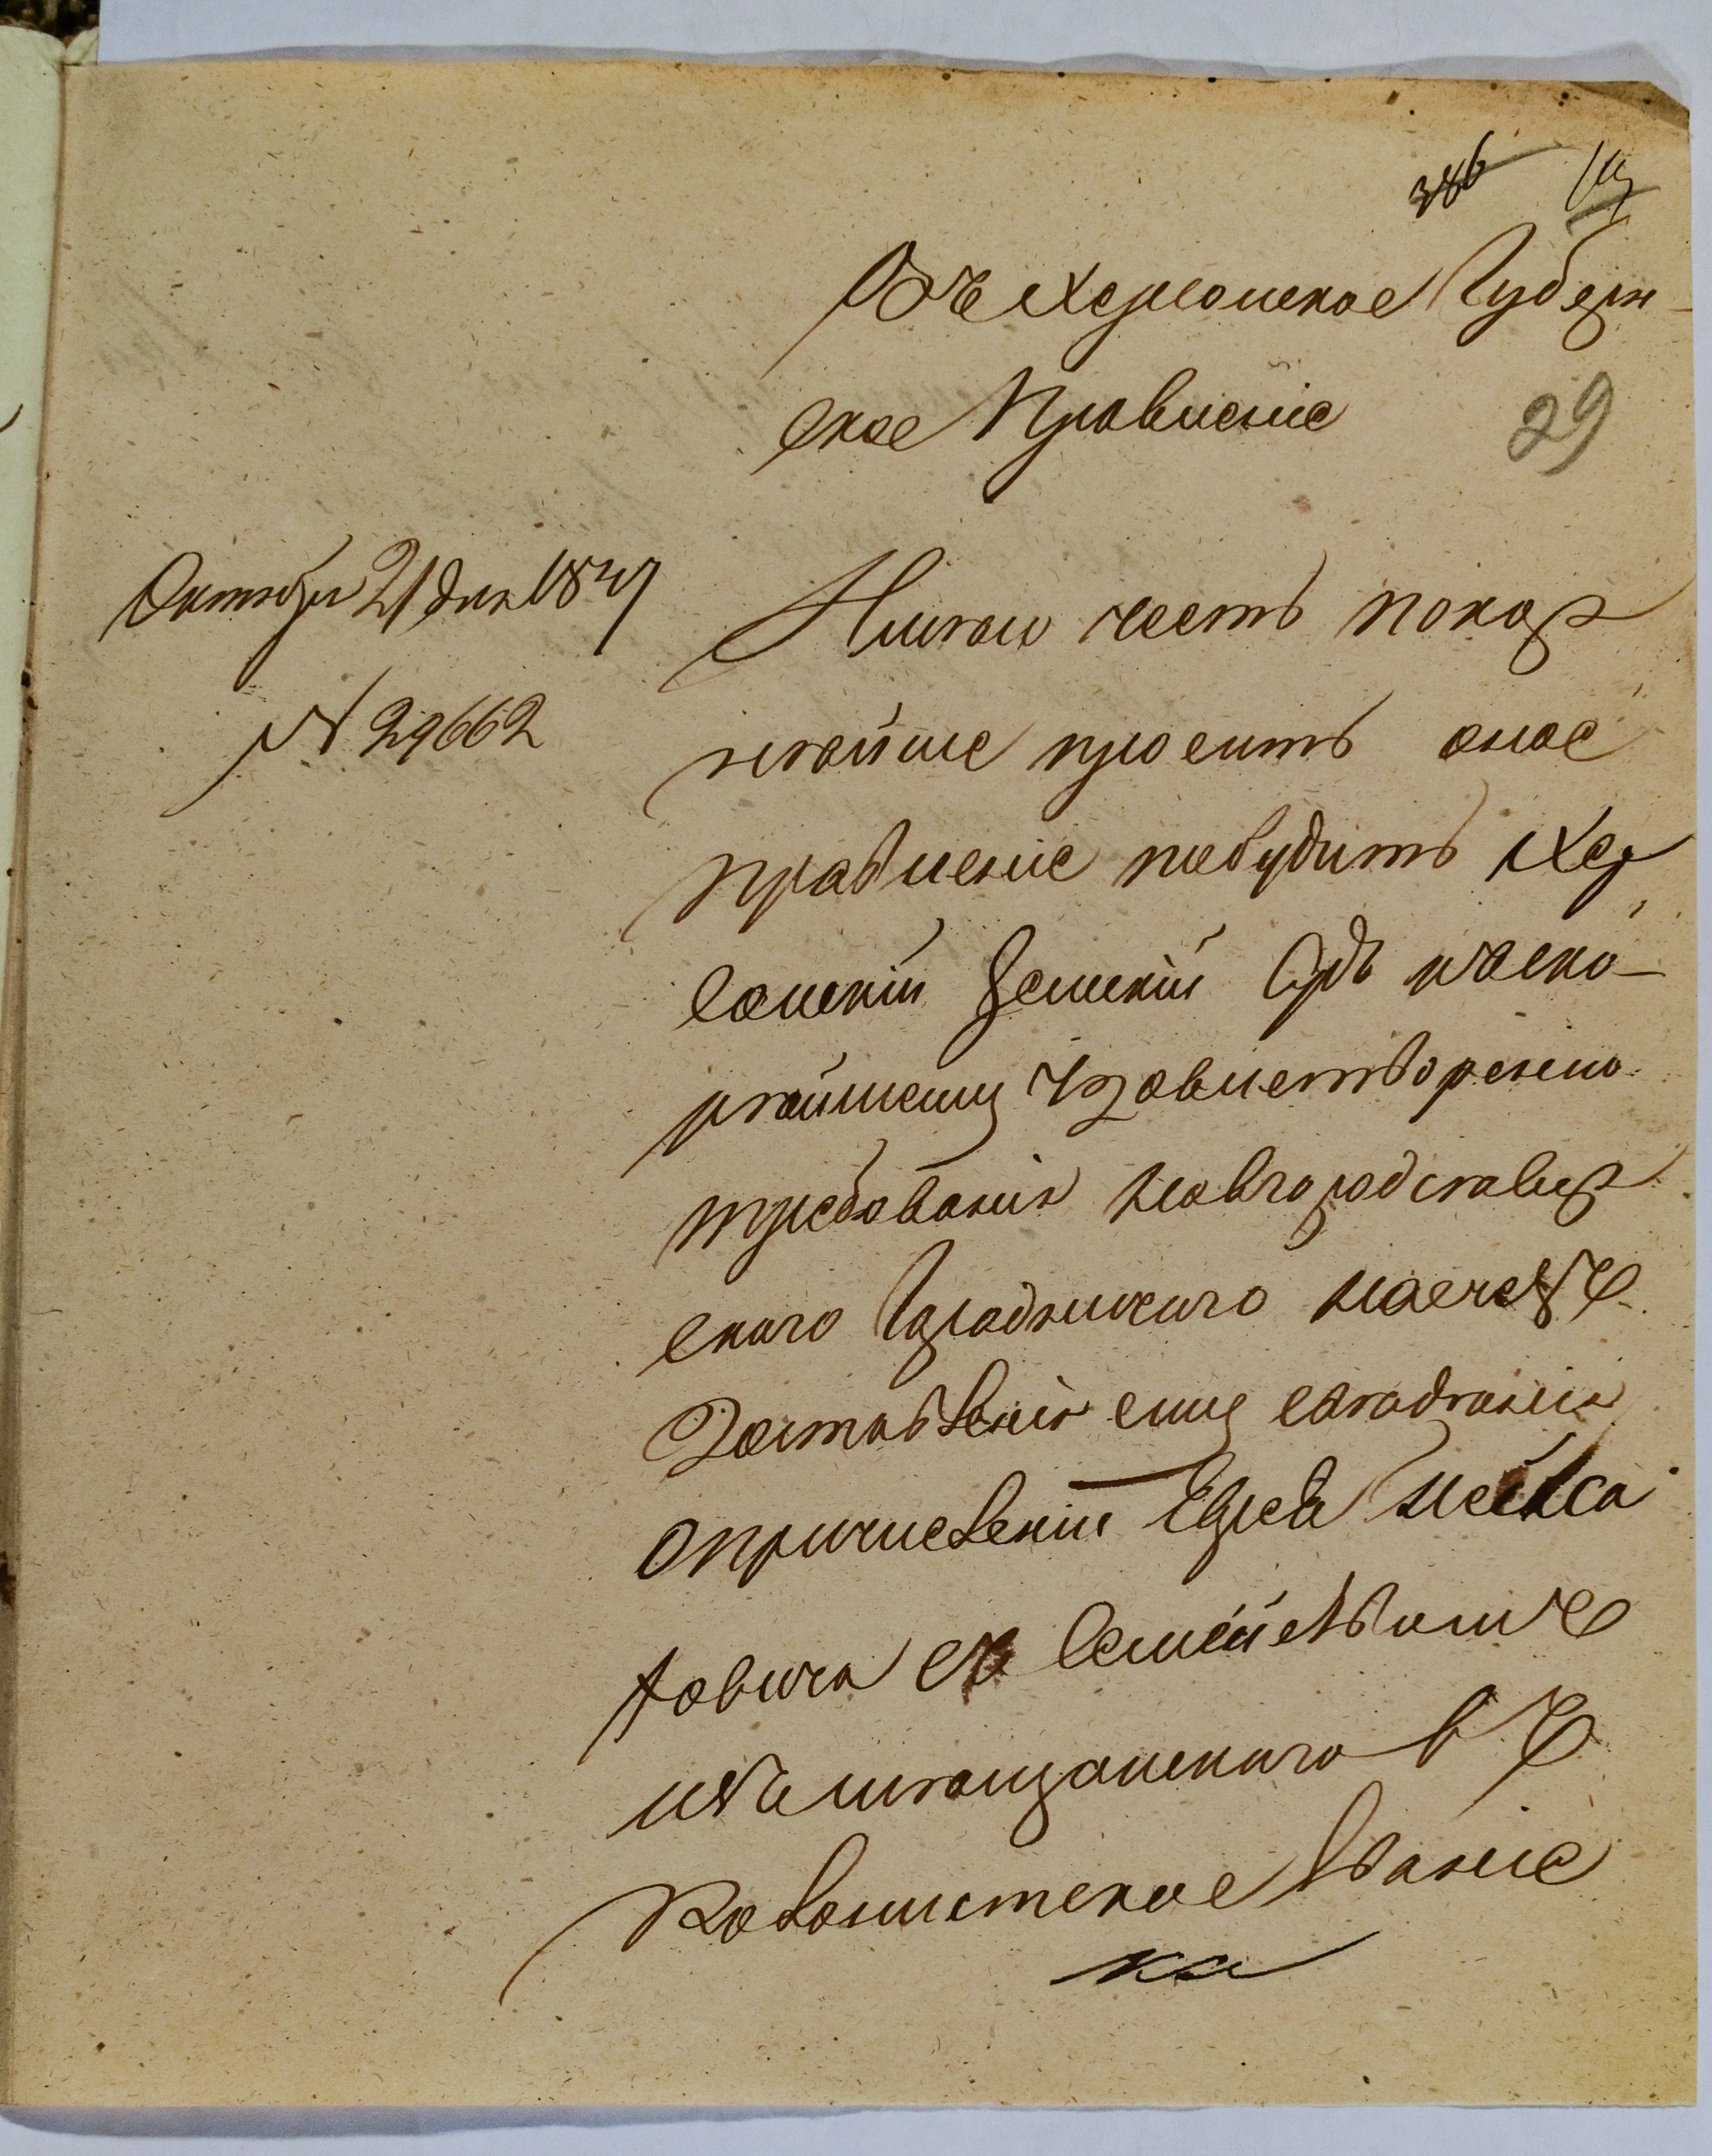 386
Въ Херсонское Губерн-
ское Правленіе
29
Октября 21 дня 1847
№ 29662
Имѣю честь покор
нѣйше просить оное
правленіе побудить Хер
сонскій Земскій Судъ къ ско-
рѣйшему удовлетворенію
требованія Новгородсѣвер
скаго Городничаго насчетъ
доставленія ему свѣдѣнія
о причисленіи Еврея
овича съ Семействомъ
изъ мѣщанскаго въ
Колонистское Званіе